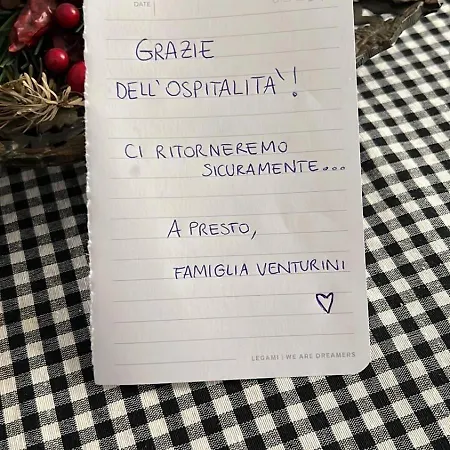 DATE
GRAZIE
DELL'OSPITALITÀ!
CI RITORNEREMO
SICURAMENTE...
A PRESTO,
FAMIGLIA VENTURINI
LEGAMI | WE ARE DREAMERS